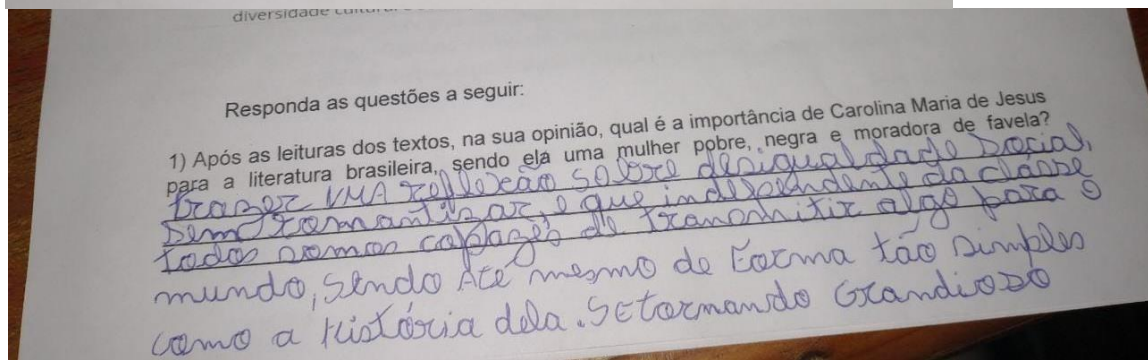 diversidade
Responda as questões a seguir:
1) Após as leituras dos textos, na sua opinião, qual é a importância de Carolina Maria de Jesus
para a literatura brasileira, sendo ela uma mulher pobre, negra e moradora de favela?
trazer UMA reflexão sobre desigualdade social,
sem romantizar, e que independente da classe
todos somos capazes de transmitir algo para o
mundo, sendo Até mesmo de Forma tão simples
como a História dela. SEtornando Grandioso